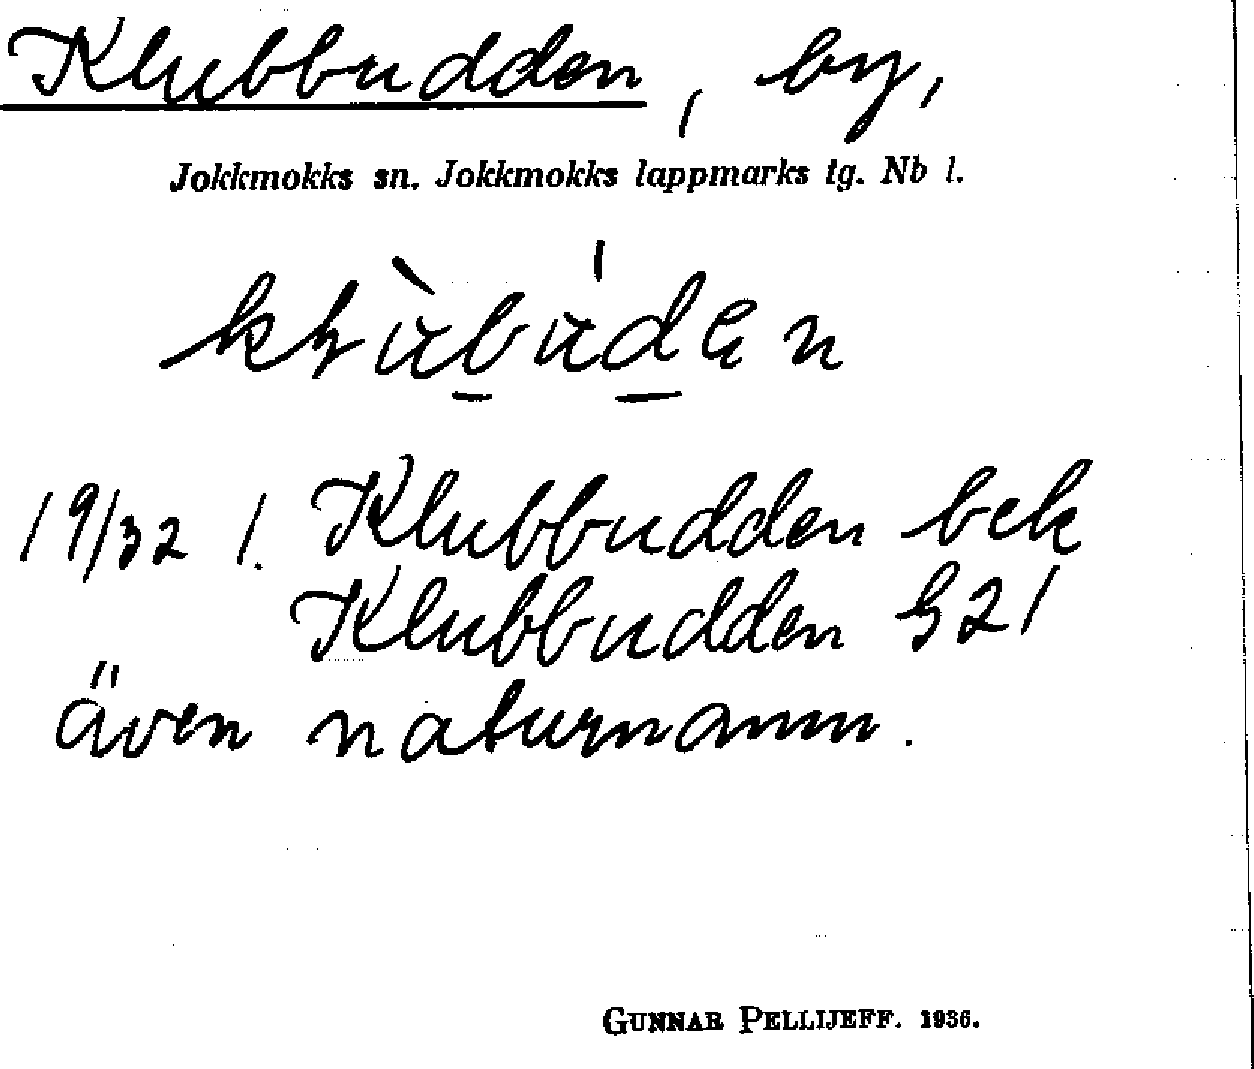 Klubbudden, by,
Jokkmokks sn. Jokkmokks lappmarks tg. Nb l.
19/32 1. Klubbudden bek
Klubbudden 321
även naturnamn.
GUNNAR PELLIJEFF. 1936.